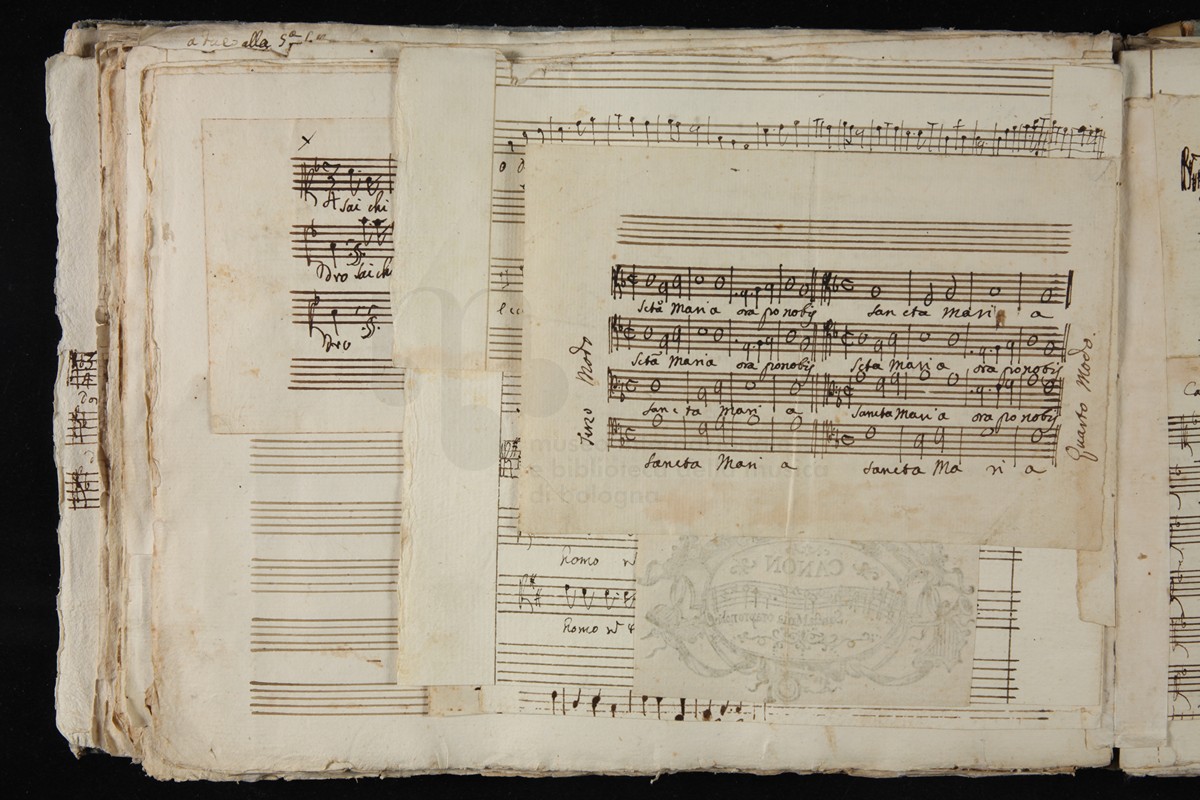 a due alla 5ª
A sai chi
Dro sai ch
Dro
Sctã Maria ora pro nobis Sancta Mari a
Sctã Maria ora pro nobis Sctã Mari a ora pro nobis
Sancta Mari a Sancta Maria ora pro nobis
Sancta Mari a Sancta Ma ri a
Terzo Modo
Quarto Modo.
Romo
Romo
CANON
museo
e biblioteca della musica
di bologna